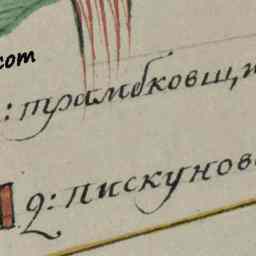 com
: трамбковщ,
2: пискунов